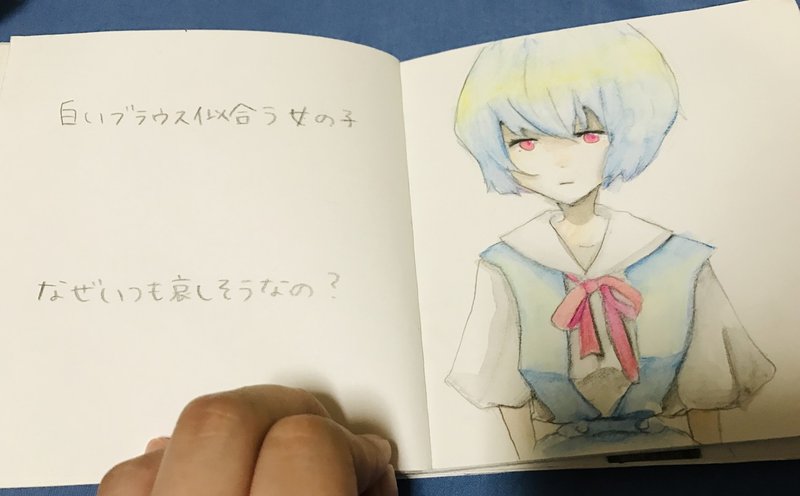 白いブラウス似合う女の子
なぜいつも哀しそうなの？